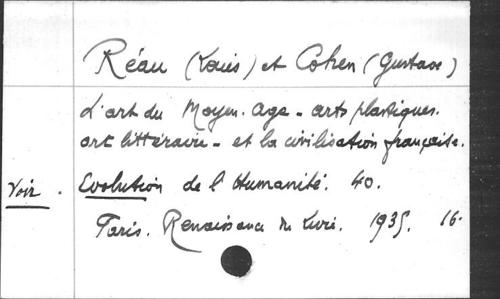 Réau (Louis) et Cohen (Gustave)
L'art du Moyen-Age - arts plastiques.
art littéraire - et la civilisation française.
Voir. Evolution de l'Humanité. 40.
Paris. Renaissance du Livre. 1935. 16-